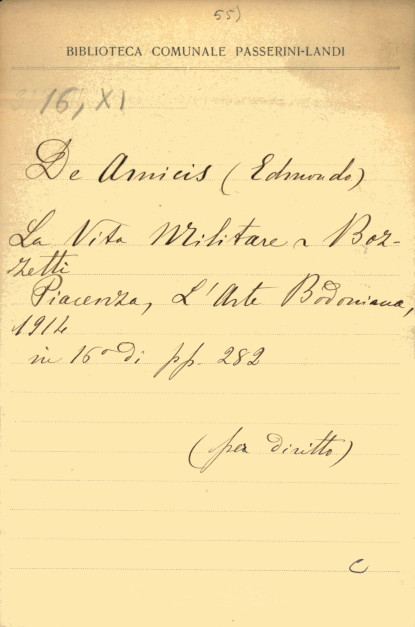 55)
BIBLIOTECA COMUNALE PASSERINI-LANDI
16, XI
De Amicis (Edmondo)
La Vita Militare - Boz-
zetti
Piacenza, L'Arte Bodoniana,
1914
in 16° di pp. 282
(per diritto)
C